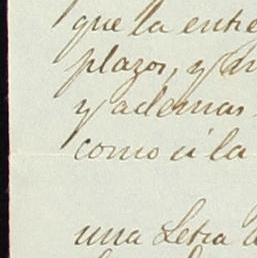 que la entre
plazos, y
y ademas
como á la
una Letra